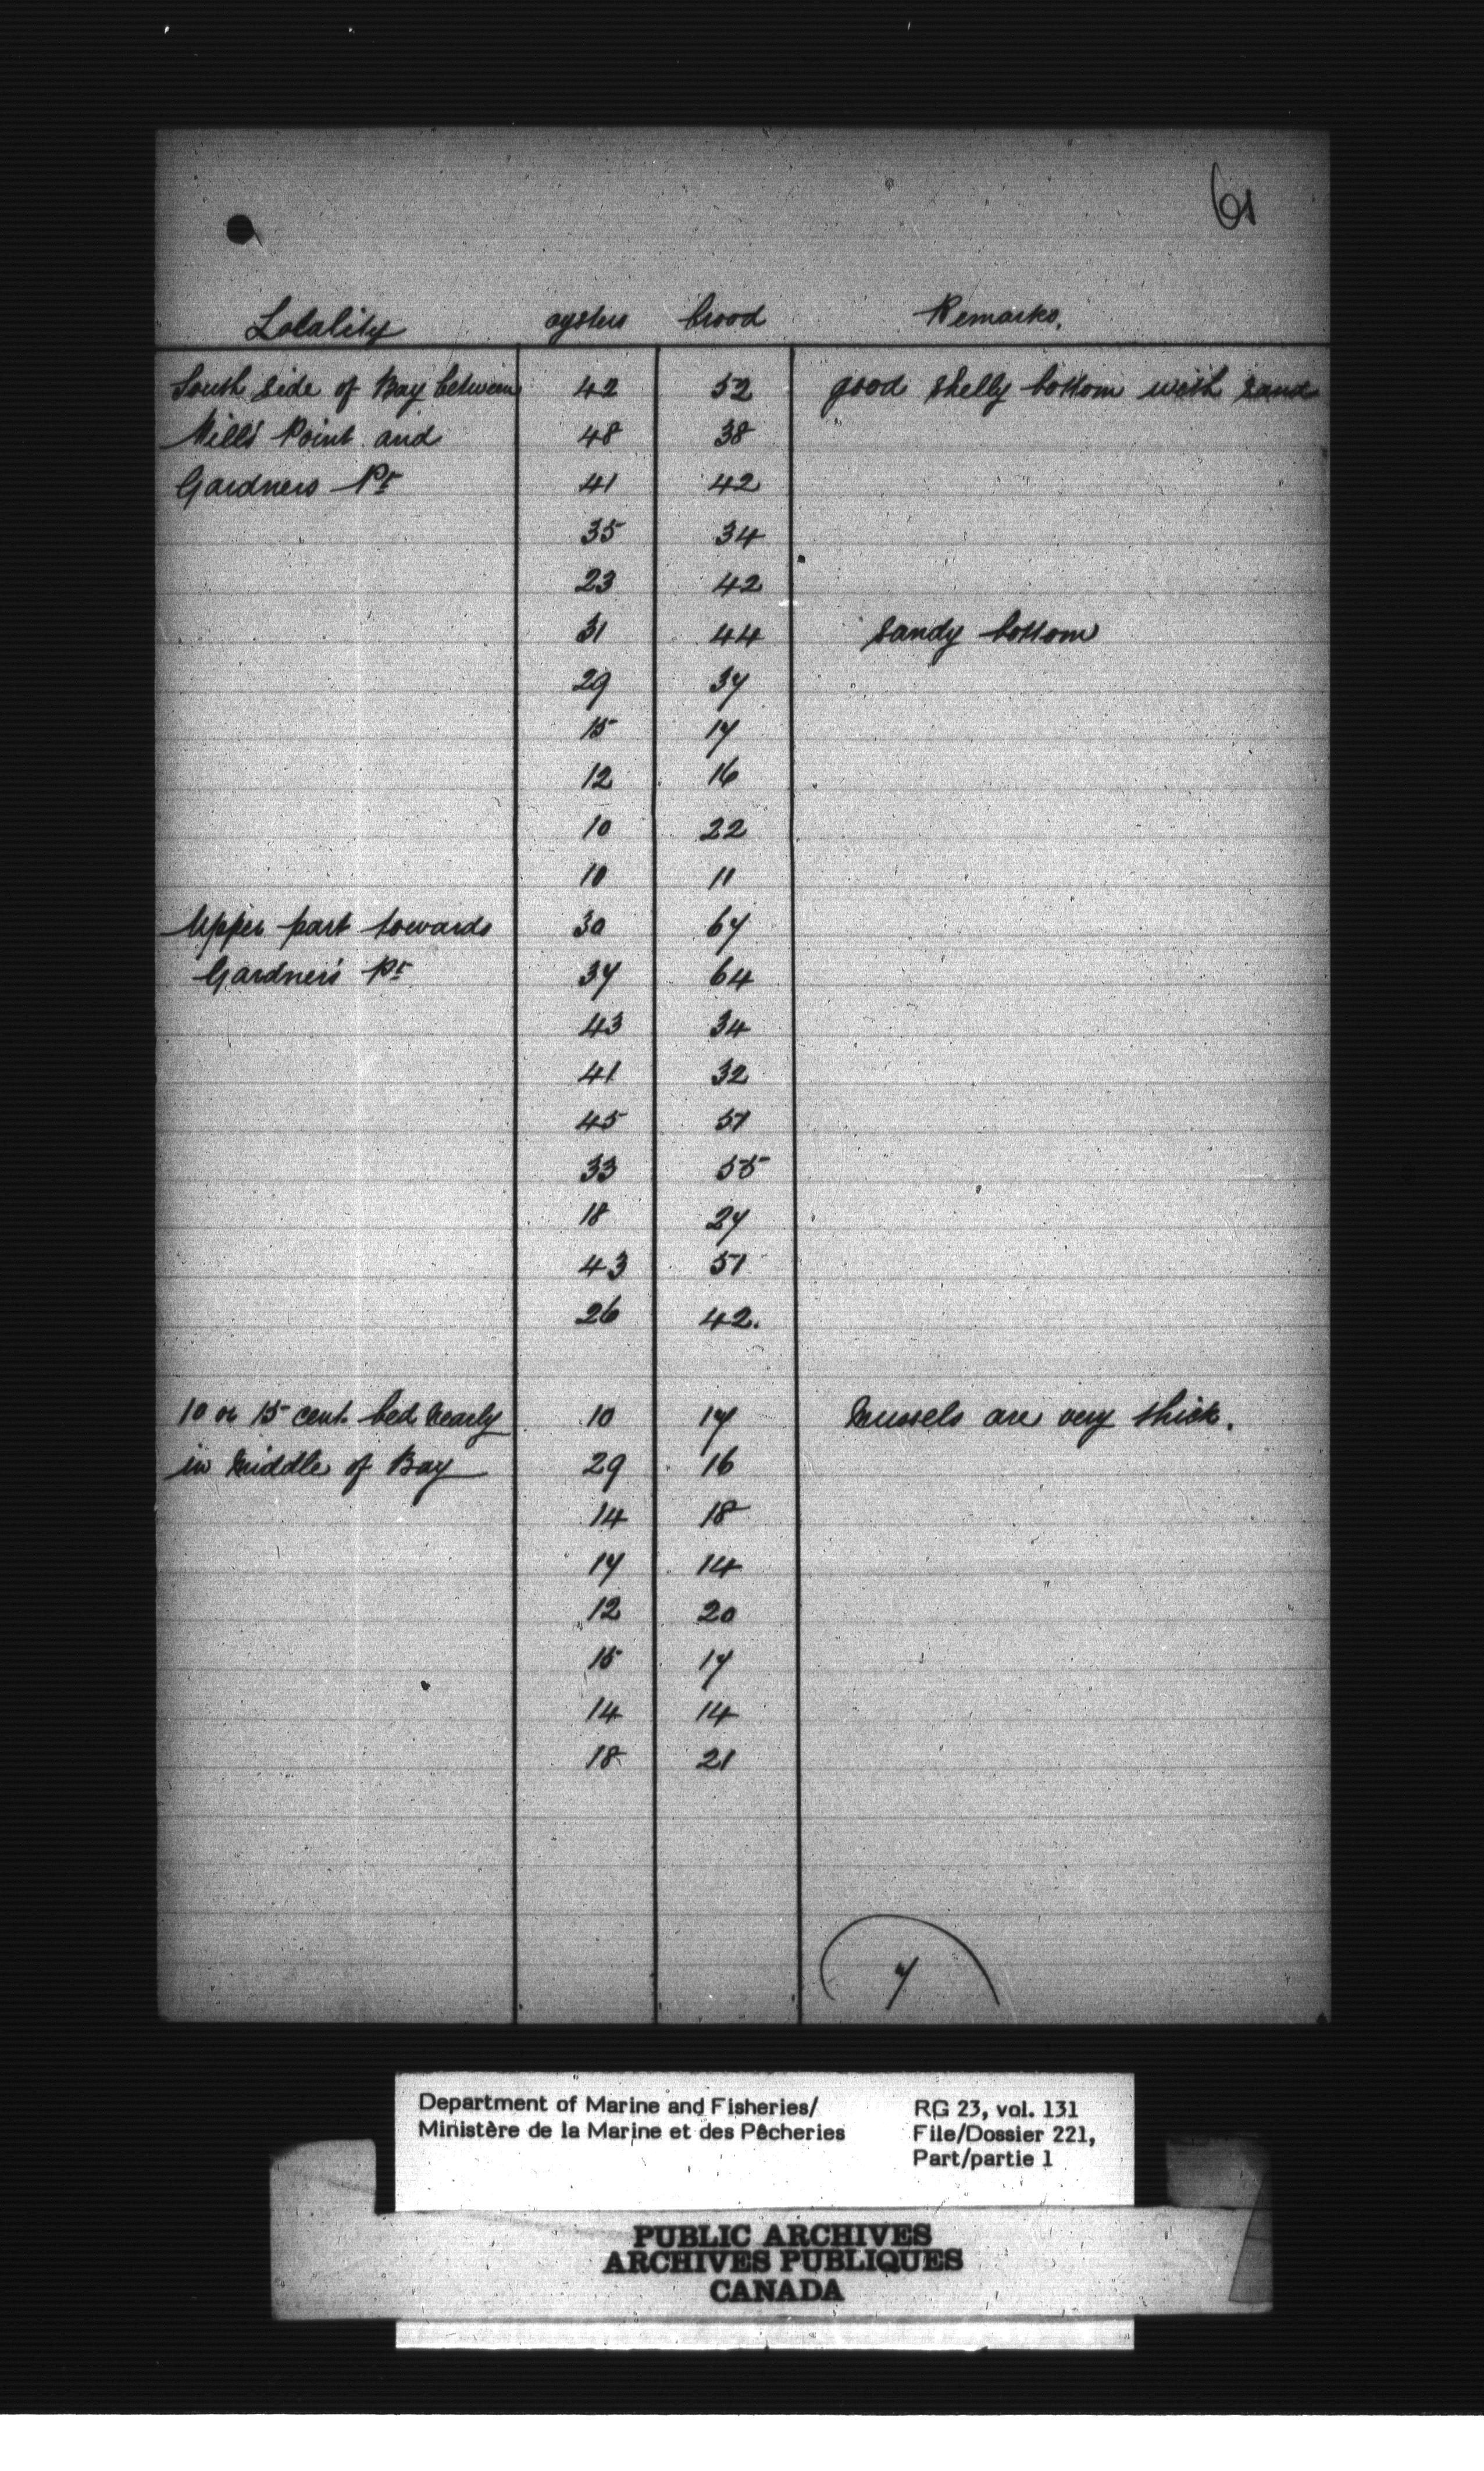 61
Locality oysters brood Remarks.
South side of Bay between 42 52 good shelly bottom with sand
Mill's Point and 48 38
Gardners Pt 41 42
35 34
23 42
31 44 sandy bottom
29 37
15 17
12 16
10 22
10 11
Upper part towards 30 67
Gardner's Pt 37 64
43 34
41 32
45 51
33 55
18 27
43 51
26 42.
10 or 15 cent. bed nearly 10 17 Mussels are very thick.
in middle of Bay 29 16
14 18
17 14
12 20
15 17
14 14
18 21
7
Department of Marine and Fisheries/ RG 23, vol. 131
Ministère de la Marine et des Pêcheries File/Dossier 221,
Part/partie 1
PUBLIC ARCHIVES
ARCHIVES PUBLIQUES
CANADA